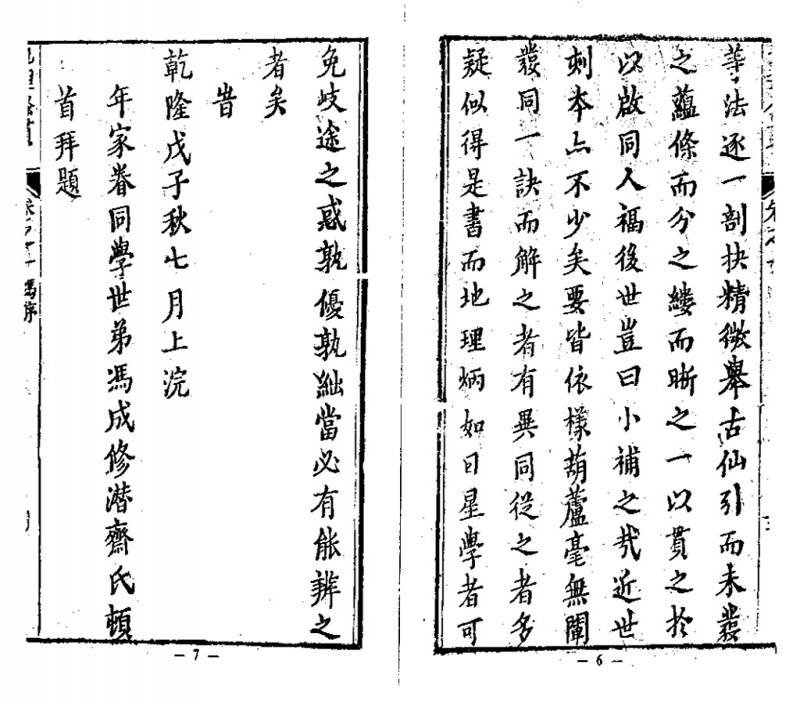 等法逐一剖抉精微舉古仙引而未發
之蘊條而分之縷而晰之一以貫之於
以啟同人福後世豈曰小補之哉近世
刺本亦不少矣要皆依樣葫蘆毫無闡
發同一訣而解之者有異同從之者多
疑似得是書而地理炳如日星學者可
— 6 —
免岐途之惑孰優孰絀當必有能辨之
者矣
旹
乾隆戊子秋七月上浣
年家眷同學世弟馮成修潜齋氏頓
首拜題
馮序
— 7 —